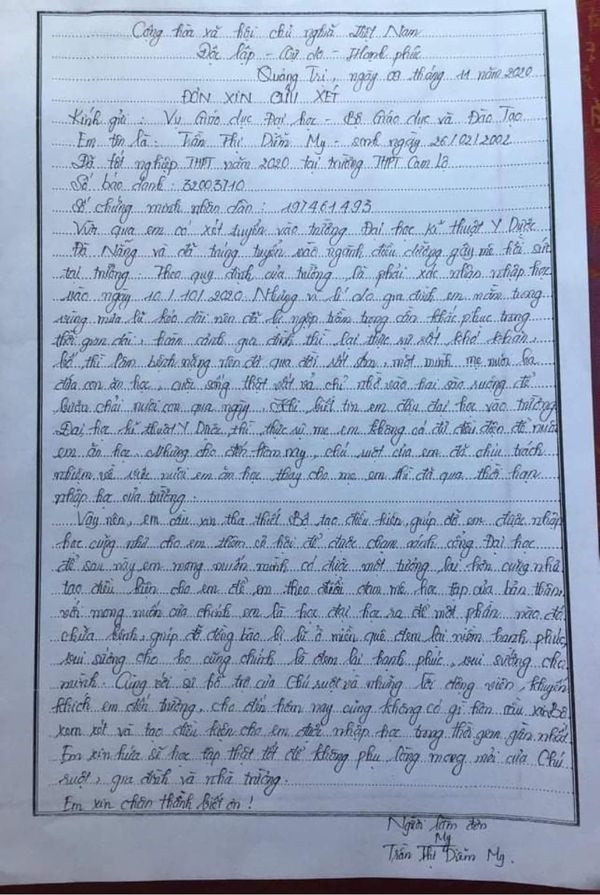 Cộng hòa xã hội chủ nghĩa Việt Nam
Độc lập - Tự do - Hạnh phúc
Quảng Trị, ngày 09 tháng 11 năm 2020
ĐƠN XIN CỨU XÉT
Kính gửi : Vụ Giáo dục Đại học - Bộ Giáo dục và Đào Tạo
Em tên là : Trần Thị Diễm My - sinh ngày 26/02/2002
Đã tốt nghiệp THPT năm 2020 tại trường THPT Cam Lộ
Số báo danh : 32003710
Số chứng minh nhân dân : 197461493
Vừa qua em có xét tuyển vào trường Đại học kĩ thuật Y Dược
Đà Nẵng và đã trúng tuyển vào ngành điều dưỡng gây mê hồi sức
tại trường. Theo quy định của trường là phải xác nhận nhập học
vào ngày 10/10/2020. Nhưng vì lí do gia đình em nằm trong
vùng mưa lũ kéo dài nên đã bị ngập trầm trong cần khắc phục trong
thời gian dài, hoàn cảnh gia đình thì lại thực sự rất khó khăn,
bố thì lâm bệnh nặng nên đã qua đời rất sớm, một mình mẹ nuôi ba
đứa con ăn học, cuộc sống thật vất vả chỉ nhờ vào hai sào ruộng để
buôn chải nuôi con qua ngày. Khi biết tin em đậu đại học vào trường
Đại học kĩ thuật Y Dược, thì thực sự mẹ em không có đủ điều kiện để nuôi
em ăn học. Nhưng cho đến hôm nay, chú ruột của em đã chịu trách
nhiệm về việc nuôi em ăn học thay cho mẹ em thì đã qua thời hạn
nhập học của trường.
Vậy nên, em cầu xin tha thiết Bộ tạo điều kiện, giúp đỡ em được nhập
học cũng như cho em thêm cơ hội để được chạm cánh cổng Đại học
để sau này em mong muốn mình có được một tương lai hơn cũng như
tạo điều kiện cho em để em theo đuổi đam mê học tập của bản thân,
với mong muốn của chính em là học đại học ra để một phần nào đó
chữa bệnh, giúp đỡ đồng bào bị lũ ở miền quê đem lại niềm hạnh phúc,
vui sướng cho họ cũng chính là đem lại hạnh phúc, vui sướng cho
mình. Cùng với sự hỗ trợ của Chú ruột và những lời động viên, khuyến
khích em đến trường, cho đến hôm nay cũng không có gì hơn cầu xin Bộ
xem xét và tạo điều kiện cho em được nhập học trong thời gian gần nhất
Em xin hứa sẽ học tập thật tốt để không phụ lòng mong mỏi của Chú
ruột, gia đình và nhà trường.
Em xin chân thành biết ơn !
Người làm đơn
My
Trần Thị Diễm My.